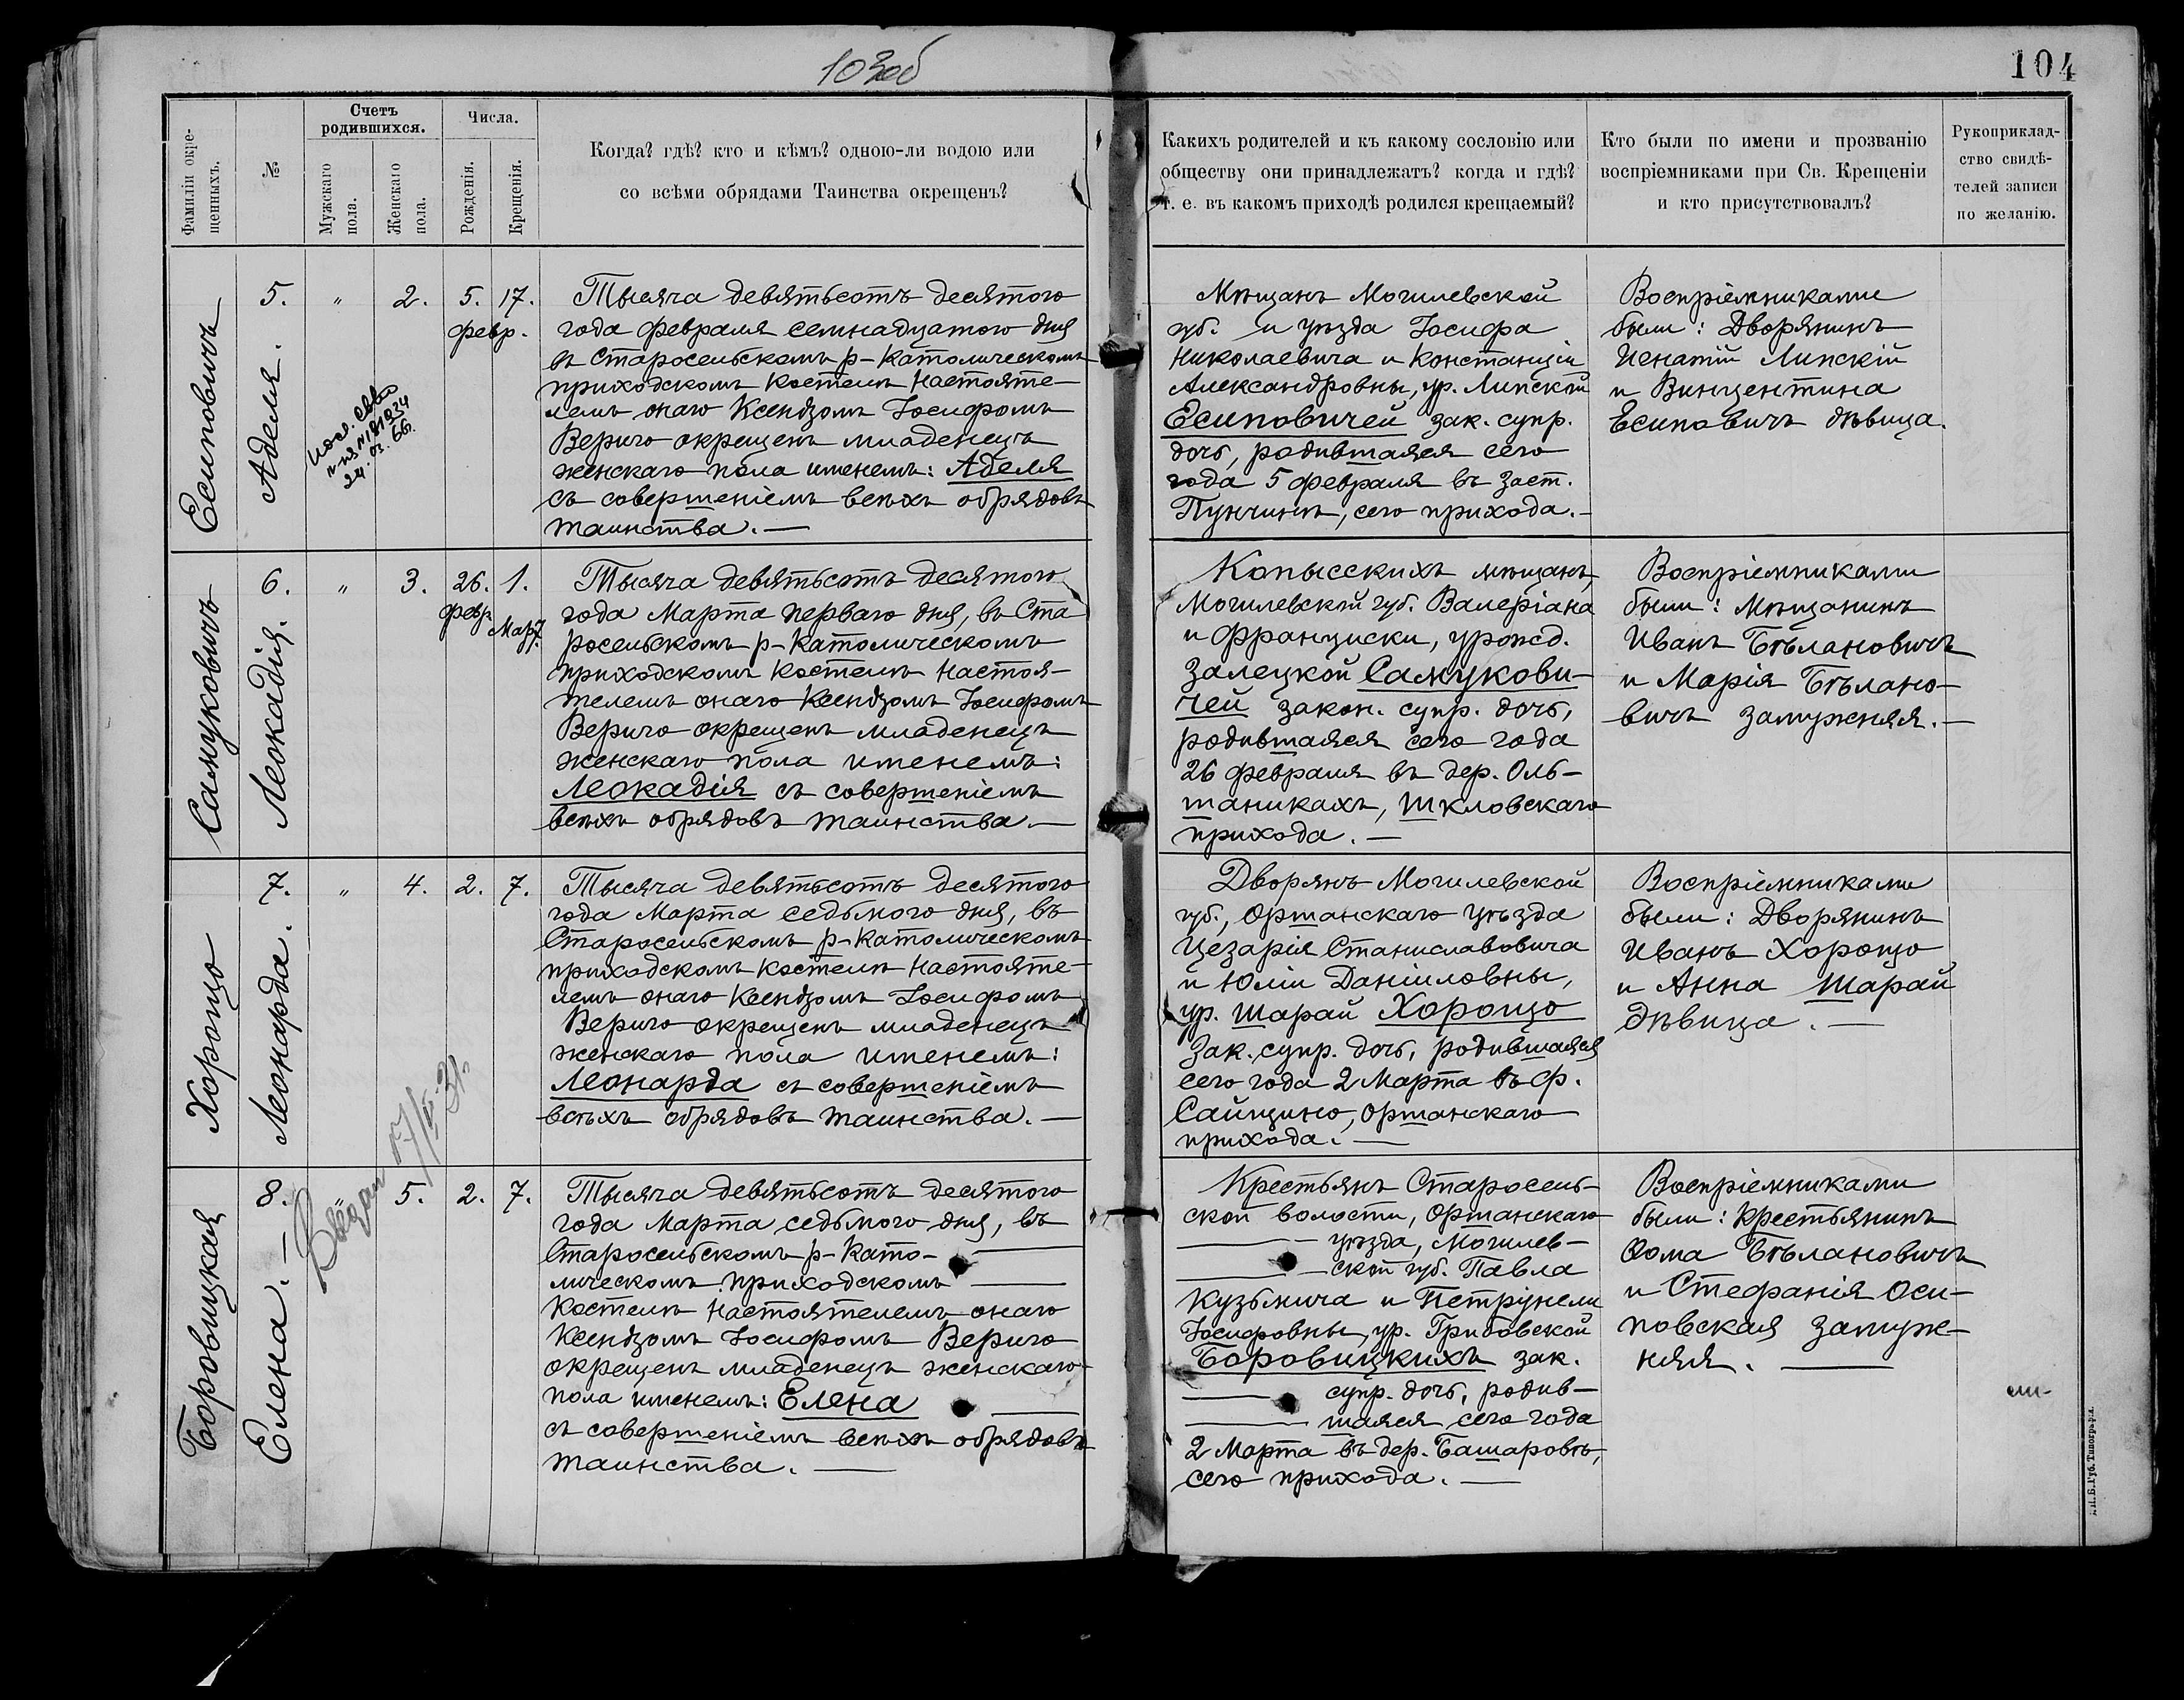 103об
104
Фамиліи окре-
щенныхъ.
№
Счетъ
родившихся.
Мужскаго
пола.
Женскаго
пола.
Числа.
Рожденія.
Крещенія.
Когда? гдѣ? кто и кѣмъ? одною-ли водою или
со всѣми обрядами Таинства окрещенъ?
Какихъ родителей и къ какому сословію или
обществу они принадлежатъ? когда и гдѣ?
т. е. въ какомъ приходѣ родился крещаемый?
Кто были по имени и прозванію
воспріемниками при Св. Крещеніи
и кто присутствовалъ?
Рукоприклад-
ство свидѣ-
телей записи
по желанію.
Есиповичъ
5.
Аделя.
"
24.03.66.
2.
5. 17.
февр.
Тысяча девятьсотъ десятого
года февраля семнадцатого дня
въ Старосельскомъ р-католическомъ
приходскомъ костелѣ Настояте-
лемъ онаго Ксендзомъ Іосифомъ
Вериго окрещенъ младенецъ
женскаго пола именемъ: Аделя
съ совершеніемъ всѣхъ обрядовъ
таинства.—
Мѣщанъ Могилевской
губ. и уѣзда Іосифа
Николаевича и Констанціи
Александровны, ур. Липской
Есиповичей зак. супр.
дочь, родившаяся сего
года 5 февраля въ заст.
Пунчинѣ, сего прихода.—
Воспріемниками
были: Дворянинъ
Игнатій Липскій
и Винцентина
Есиповичъ дѣвица.
Самуковичъ
6.
Леокадія.
"
3.
26. 1.
февр. Март.
Тысяча девятьсотъ десятого
года Марта перваго дня, въ Ста
росельскомъ р-католическомъ
приходскомъ костелѣ Настоя-
телемъ онаго Ксендзомъ Іосифомъ
Вериго окрещенъ младенецъ
женскаго пола именемъ:
Леокадія съ совершеніемъ
всѣхъ обрядовъ таинства.—
Копысскихъ мѣщанъ,
Могилевской губ. Валеріана
и Франциски, урожд.
Залецкой Самукови-
чей закон. супр. дочь,
родившаяся сего года
26 февраля въ дер. Оль-
шаникахъ, Шкловскаго
прихода.—
Воспріемниками
были: Мѣщанинъ
Иванъ Бѣлановичъ
и Марія Бѣлано-
вичъ замужняя.—
Хорощо
7.
Леонарда.
"
4.
2. 7.
Тысяча девятьсотъ десятого
года Марта седьмого дня, въ
Старосельскомъ р-католическомъ
приходскомъ костелѣ Настояте-
лемъ онаго Ксендзомъ Іосифомъ
Вериго окрещенъ младенецъ
женскаго пола именемъ:
Леонарда съ совершеніемъ
всѣхъ обрядовъ таинства.—
Дворянъ Могилевской
губ., Оршанскаго уѣзда
Цезарія Станиславовича
и Юліи Даніиловны,
ур. Шарай Хорощо
Зак. супр. дочь, родившаяся
сего года 2 Марта въ ф.
Сайщино, Оршанскаго
прихода.—
Воспріемниками
были: Дворянинъ
Иванъ Хорощо
и Анна Шарай
дѣвица.—
Боровицкая
8.
Елена.—
"
5.
2. 7.
Тысяча девятьсотъ десятого
года Марта седьмого дня, въ
Старосельскомъ р-като-
лическомъ приходскомъ
костелѣ Настоятелемъ онаго
Ксендзомъ Іосифомъ Вериго
окрещенъ младенецъ женскаго
пола именемъ: Елена
съ совершеніемъ всѣхъ обрядовъ
таинства.—
Крестьянъ Старосель-
ской волости, Оршанскаго
уѣзда, Могилев-
ской губ. Павла
Кузьмича и Петрунели
Іосифовны, ур. Грибовской
Боровицкихъ зак.
супр. дочь, родив-
шаяся сего года
2 Марта въ дер. Башаровѣ,
сего прихода.—
Воспріемниками
были: Крестьянинъ
Ѳома Бѣлановичъ
и Стефанія Оси-
повская замуж-
няя.—